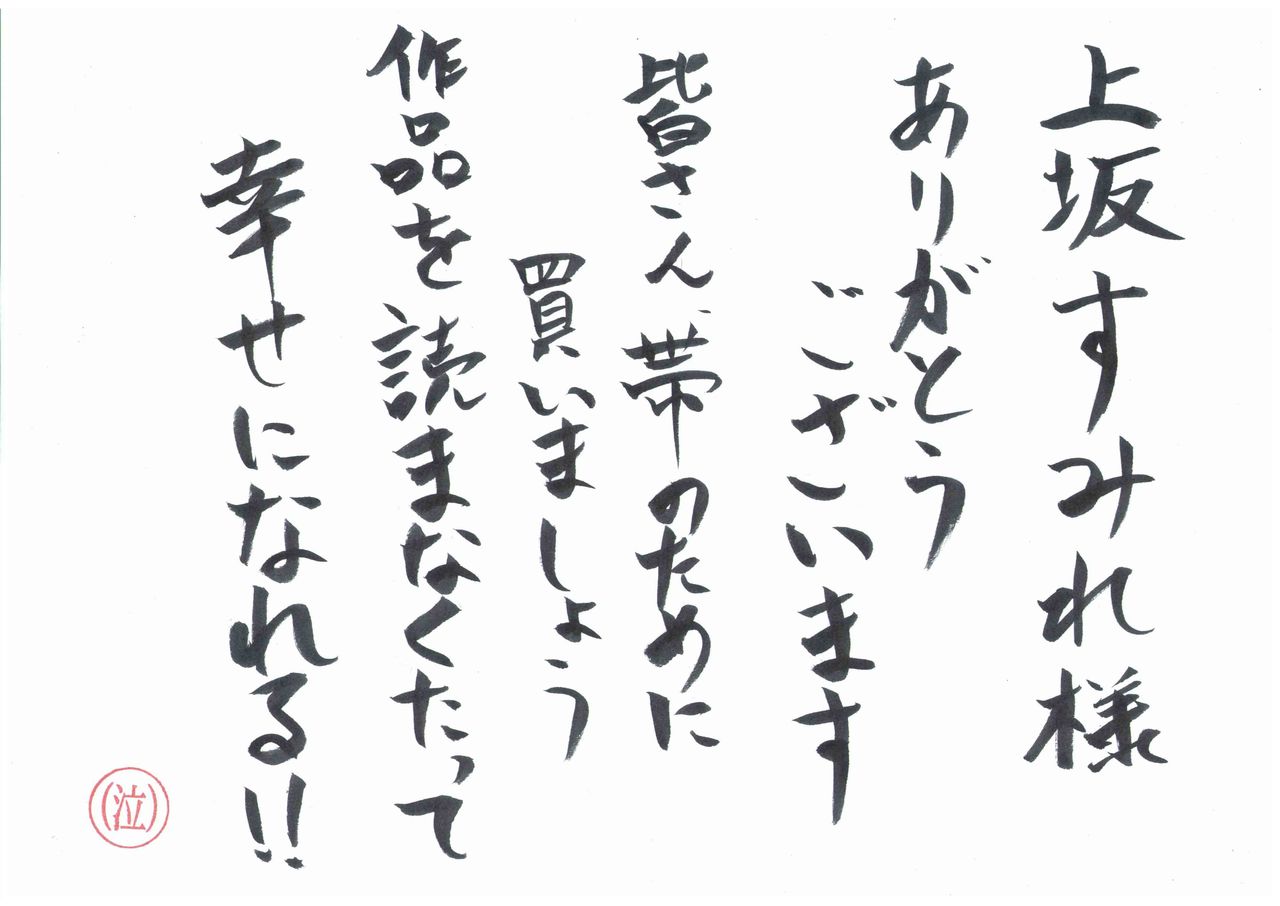 上坂すみれ様
ありがとう
ございます
皆さん、帯のために
買いましょう
作品を読まなくたって
幸せになれる!!
(泣)